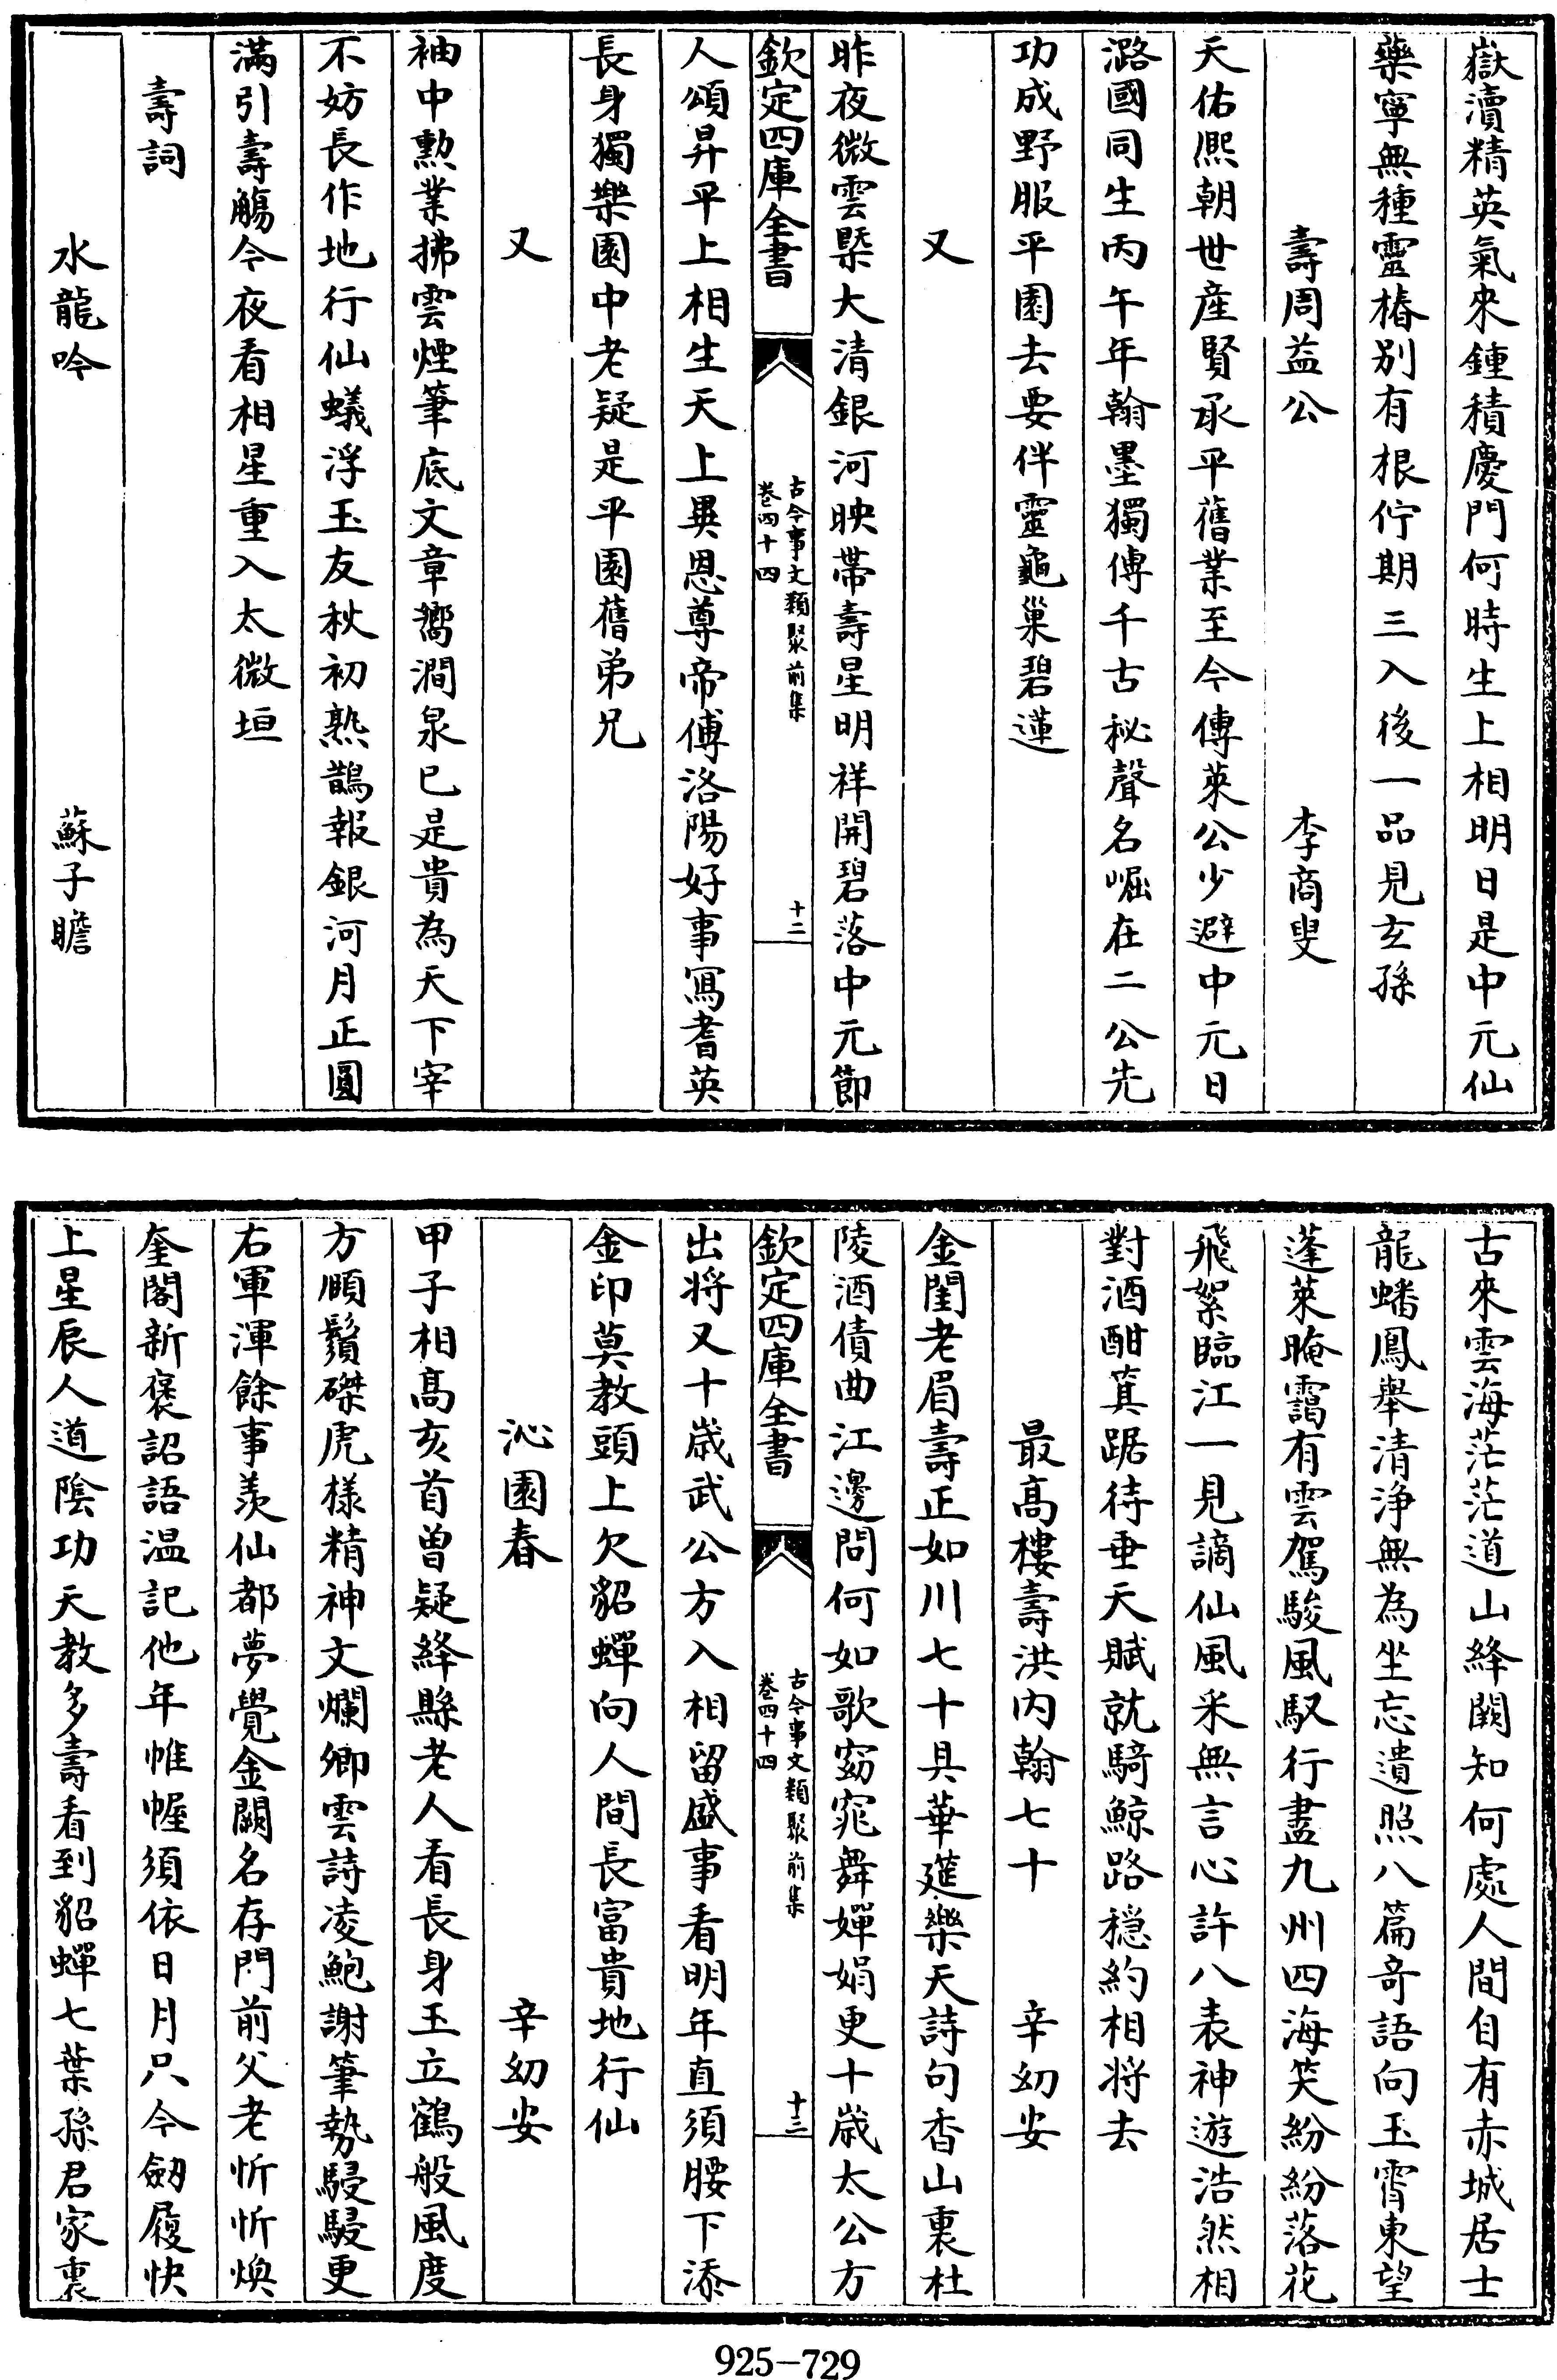 嶽瀆精英氣來鍾積慶門何時生上相明日是中元仙
藥寧無種靈椿别有根佇期三入後一品見玄孫
壽周益公　李商叟
天佑熈朝世産賢承平舊業至今傳萊公少避中元日
潞國同生丙午年翰墨獨傳千古秘聲名崛在二公先
功成野服平園去要伴靈龜巢碧蓮
又
昨夜微雲槩大清銀河映帶壽星明祥開碧落中元節
欽定四庫全書
古今事文類聚前集
卷四十四
十二
人頌昇平上相生天上異恩尊帝傅洛陽好事寫耆英
長身獨樂園中老疑是平園舊弟兄
又
袖中勲業拂雲煙筆底文章嚮澗泉已是貴為天下宰
不妨長作地行仙蟻浮玉友秋初熟鵲報銀河月正圓
滿引壽觴今夜看相星重入太微垣
壽詞
水龍吟　蘇子瞻
古來雲海茫茫道山絳闕知何處人間自有赤城居士
龍蟠鳳舉清浄無為坐忘遺照八篇奇語向玉霄東望
蓬萊晻靄有雲駕駿風馭行盡九州四海笑紛紛落花
飛絮臨江一見謫仙風采無言心許八表神遊浩然相
對酒酣箕踞待垂天賦就騎鯨路穏約相将去
最髙樓壽洪内翰七十　辛幼安
金閨老眉壽正如川七十具華筵樂天詩句香山裏杜
陵酒債曲江邊問何如歌窈窕舞嬋娟更十歲太公方
欽定四庫全書
古今事文類聚前集
卷四十四
十三
出将又十歲武公方入相留盛事看明年直須腰下添
金印莫教頭上欠貂蟬向人間長富貴地行仙
沁園春　辛幼安
甲子相髙亥首曾疑絳縣老人看長身玉立鶴般風度
方頤鬚磔虎樣精神文爛卿雲詩凌鮑謝筆勢駸駸更
右軍渾餘事羨仙都夢覺金闕名存門前父老忻忻煥
奎閣新褒詔語温記他年帷幄須依日月只今劒履快
上星辰人道陰功天教多壽看到貂蟬七葉孫君家裏
925-729